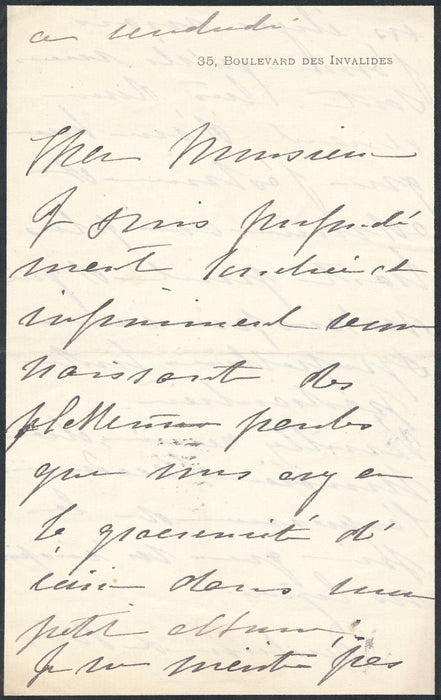 ce vendredi
35, BOULEVARD DES INVALIDES
Cher Monsieur
Je suis profondé
ment touchée et
infiniment recon
naissante des
flatteuses paroles
que vous avez eu
la gracieuseté d'é
crire dans mon
petit album,
Je ne mérite pas